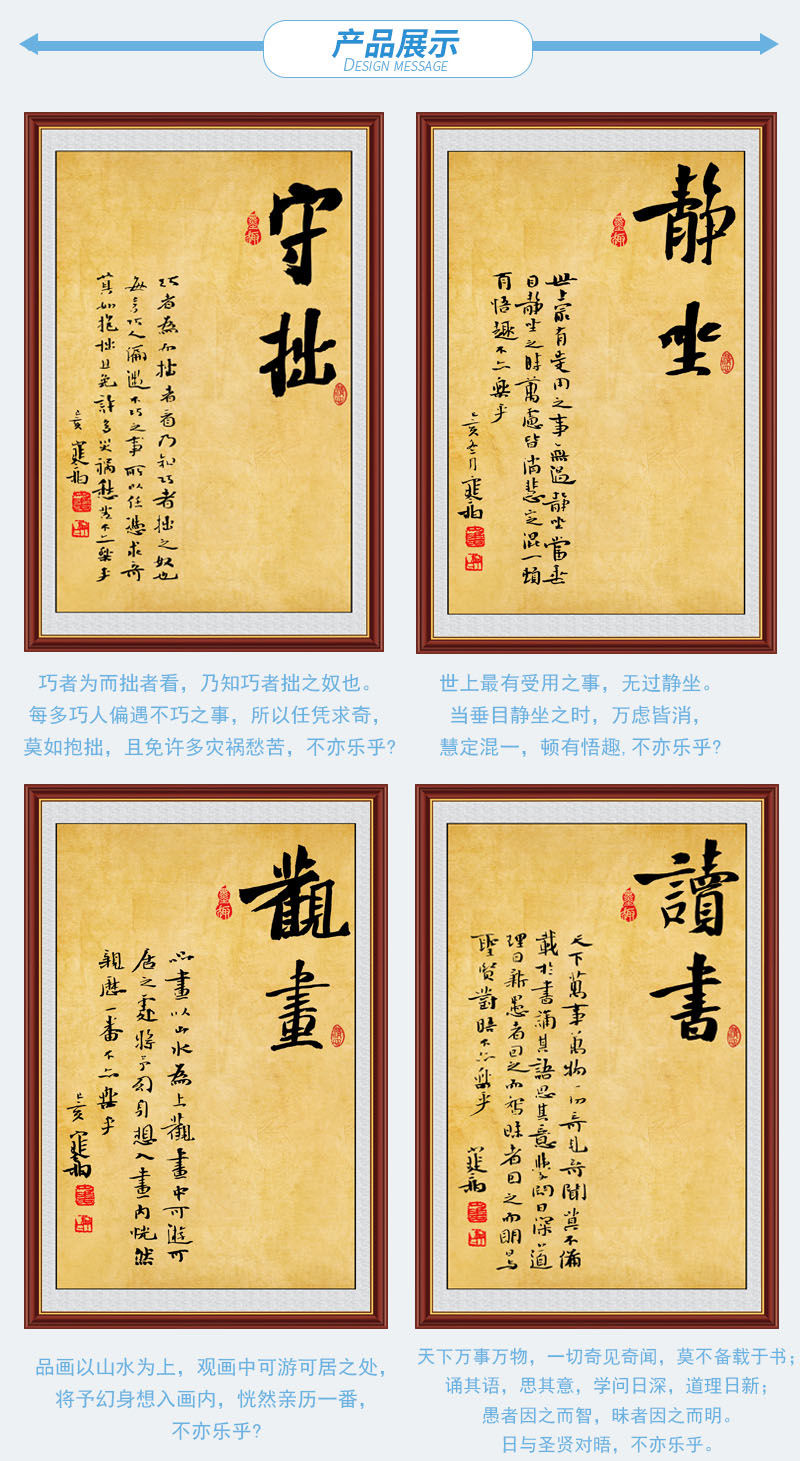 产品展示
DESIGN MESSAGE
守拙
巧者為而拙者看乃知巧者拙之奴也
每多巧人偏遇不巧之事所以任憑求奇
莫如抱拙且免許多災禍愁苦不亦樂乎
乙亥
巧者为而拙者看，乃知巧者拙之奴也。
每多巧人偏遇不巧之事，所以任凭求奇，
莫如抱拙，且免许多灾祸愁苦，不亦乐乎?
静坐
世上最有受用之事無過静坐當垂
目静坐之時萬慮皆消慧定混一頓
有悟趣不亦樂乎
世上最有受用之事，无过静坐。
当垂目静坐之时，万虑皆消，
慧定混一，顿有悟趣,不亦乐乎?
觀畫
品畫以山水為上觀畫中可遊可
居之處將予幻身想入畫内恍然
親歷一番不亦樂乎
乙亥
品画以山水为上，观画中可游可居之处，
将予幻身想入画内，恍然亲历一番，
不亦乐乎?
讀書
天下萬事萬物一切奇見奇聞莫不備
載於書誦其語思其意學問日深道
理日新愚者因之而智昧者因之而明日与
聖賢對晤不亦樂乎
天下万事万物，一切奇见奇闻，莫不备载于书；
诵其语，思其意，学问日深，道理日新；
愚者因之而智，昧者因之而明。
日与圣贤对晤，不亦乐乎。